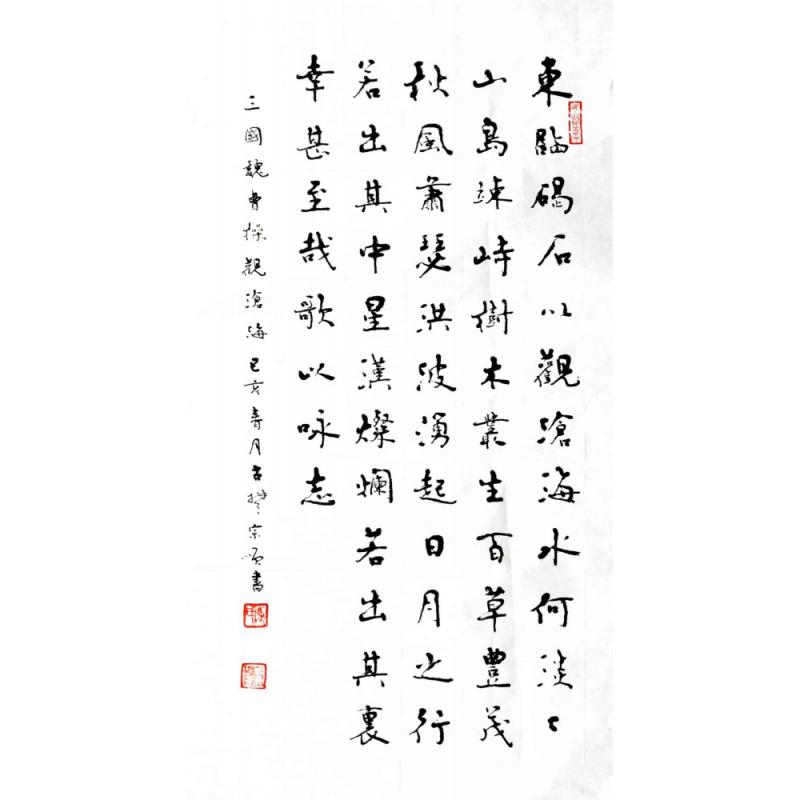 東臨碣石以觀滄海水何淡〻
山島竦峙樹木叢生百草豐茂
秋風蕭瑟洪波湧起日月之行
若出其中星漢燦爛若出其裏
幸甚至哉歌以咏志
三國魏曹操觀滄海己亥春月古楚宗順書